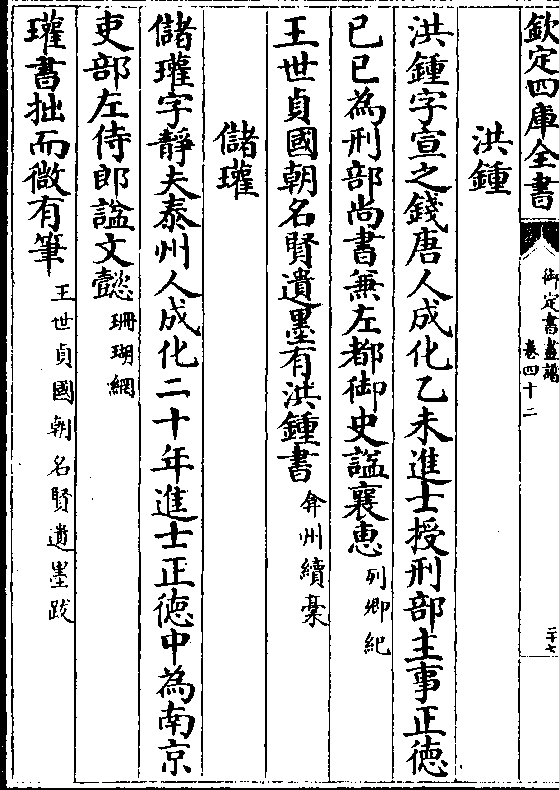 欽定四庫全書
御定書畫譜
卷四十二
二十七
洪鍾
洪鍾字宣之錢唐人成化乙未進士授刑部主事正徳
已巳為刑部尚書兼左都御史諡襄惠列卿紀
王世貞國朝名賢遺墨有洪鍾書弇州續稾
儲瓘
儲瓘字靜夫泰州人成化二十年進士正徳中為南京
吏部左侍郎諡文懿珊瑚網
瓘書拙而微有筆王世貞國朝名賢遺墨跋